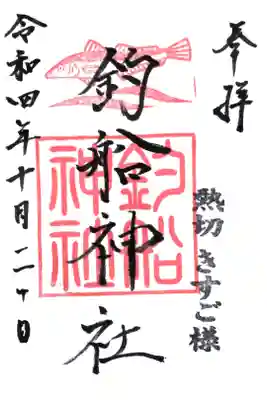 奉拝
熱切 きすご様
釣船神社
釣船神社
令和四年十月二十日